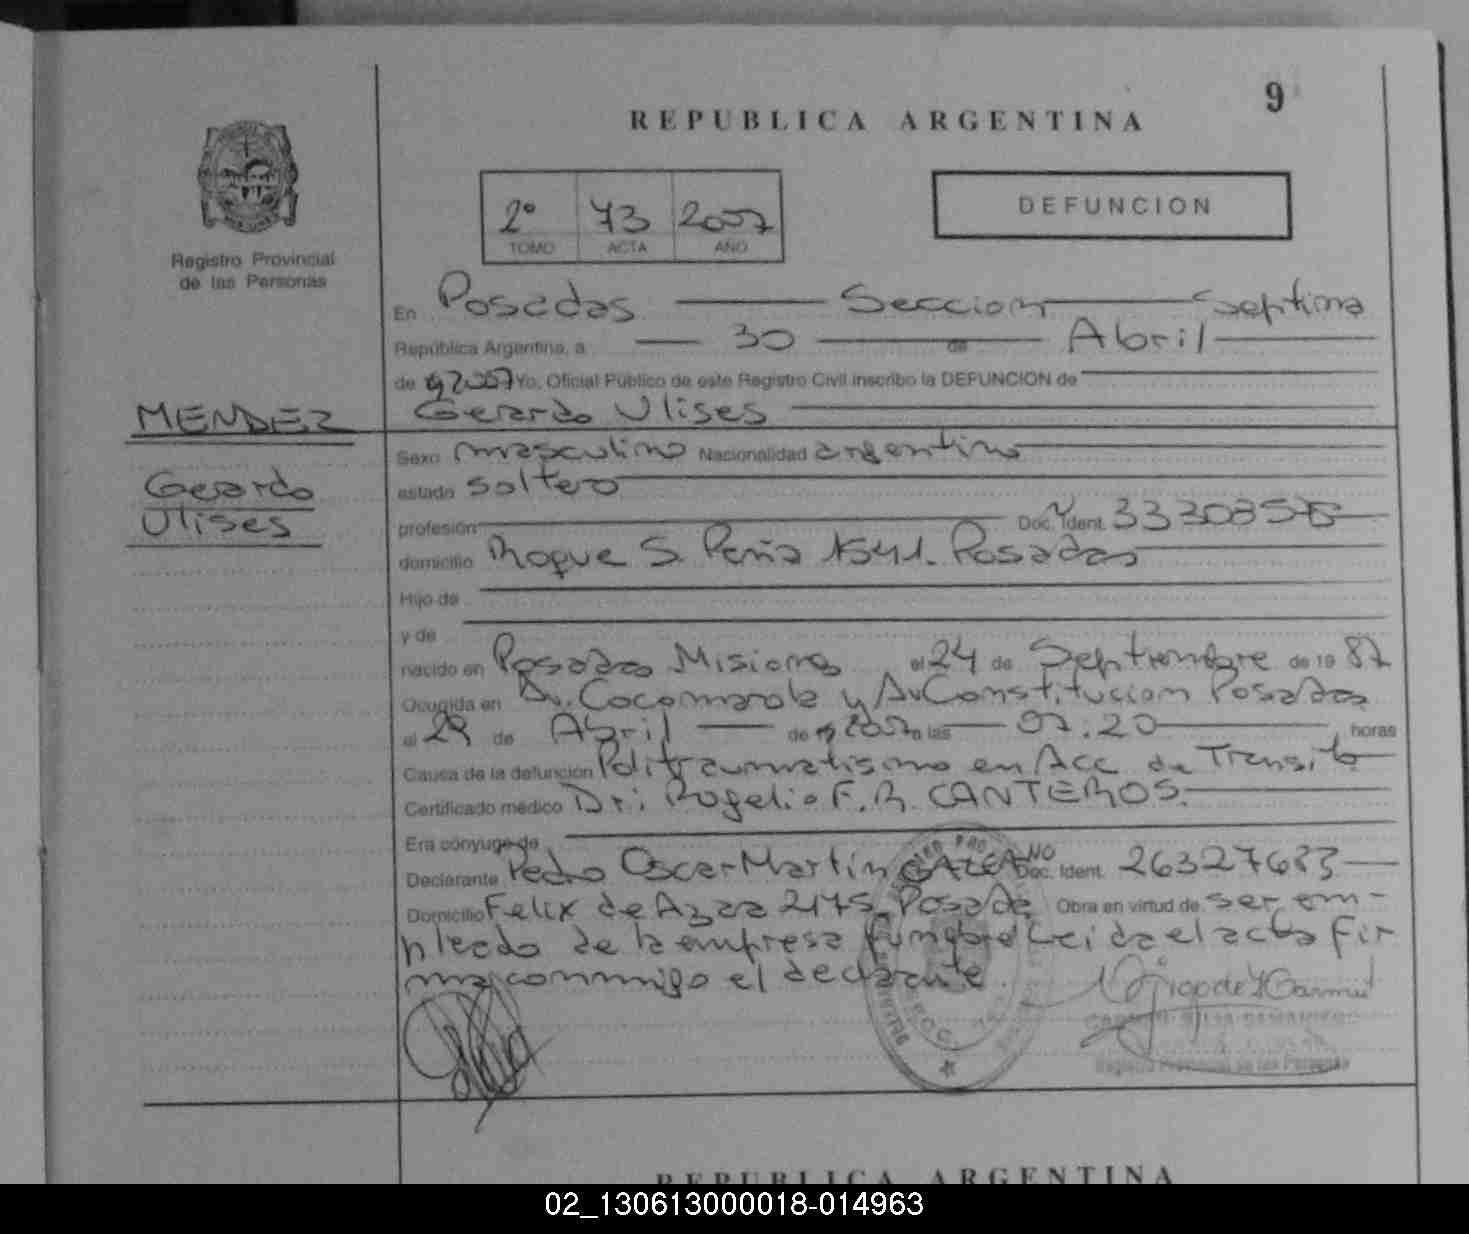 9
REPUBLICA ARGENTINA
2° 73 2007
TOMO ACTA AÑO
DEFUNCION
Registro Provincial
de las Personas
En Posadas Seccion Septima
República Argentina, a 30 de Abril
de 2007 Yo, Oficial Público de este Registro Civil inscribo la DEFUNCION de
MENDEZ Gerardo Ulises
Sexo masculino Nacionalidad argentino
Gerardo
estado soltero
Ulises
profesión Doc. Ident.
domicilio Roque S. Peña 1541. Posadas
Hijo de
y de
nacido en Posadas Misiones el 24 de Septiembre de 19 87
Ocurrida en Av. Cocomarola y Av Constitucion Posadas
el 29 de Abril de 2007 a las 07:20 horas
Causa de la defunción Politraumatismo en Acc de Transito
Certificado médico Dr: Rogelio F. R. CANTEROS.
Era cónyuge de
Declarante Pedro Oscar Martin Doc. Ident. 26327633
Domicilio Felix de Azara 2175 Posadas Obra en virtud de ser em-
pleado de la empresa funebre Leida el acta fir
ma conmigo el declarante
Registro Provincial de las Personas
REPUBLICA ARGENTINA
02_130613000018-014963